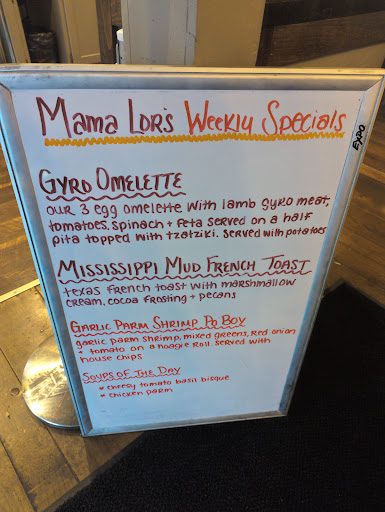 Mama Lor's Weekly Specials
EXPO
Gyro Omelette
our 3 egg omelette with lamb gyro meat,
tomatoes, spinach + feta served on a half
pita topped with tzatziki. served with potatoes
Mississippi Mud French Toast
texas french toast with marshmallow
cream, cocoa frosting + pecans
Garlic Parm Shrimp Po Boy
garlic parm shrimp, mixed greens, red onion
+ tomato on a hoagie roll served with
house chips
Soups of the Day
* cheesy tomato basil bisque
* chicken parm